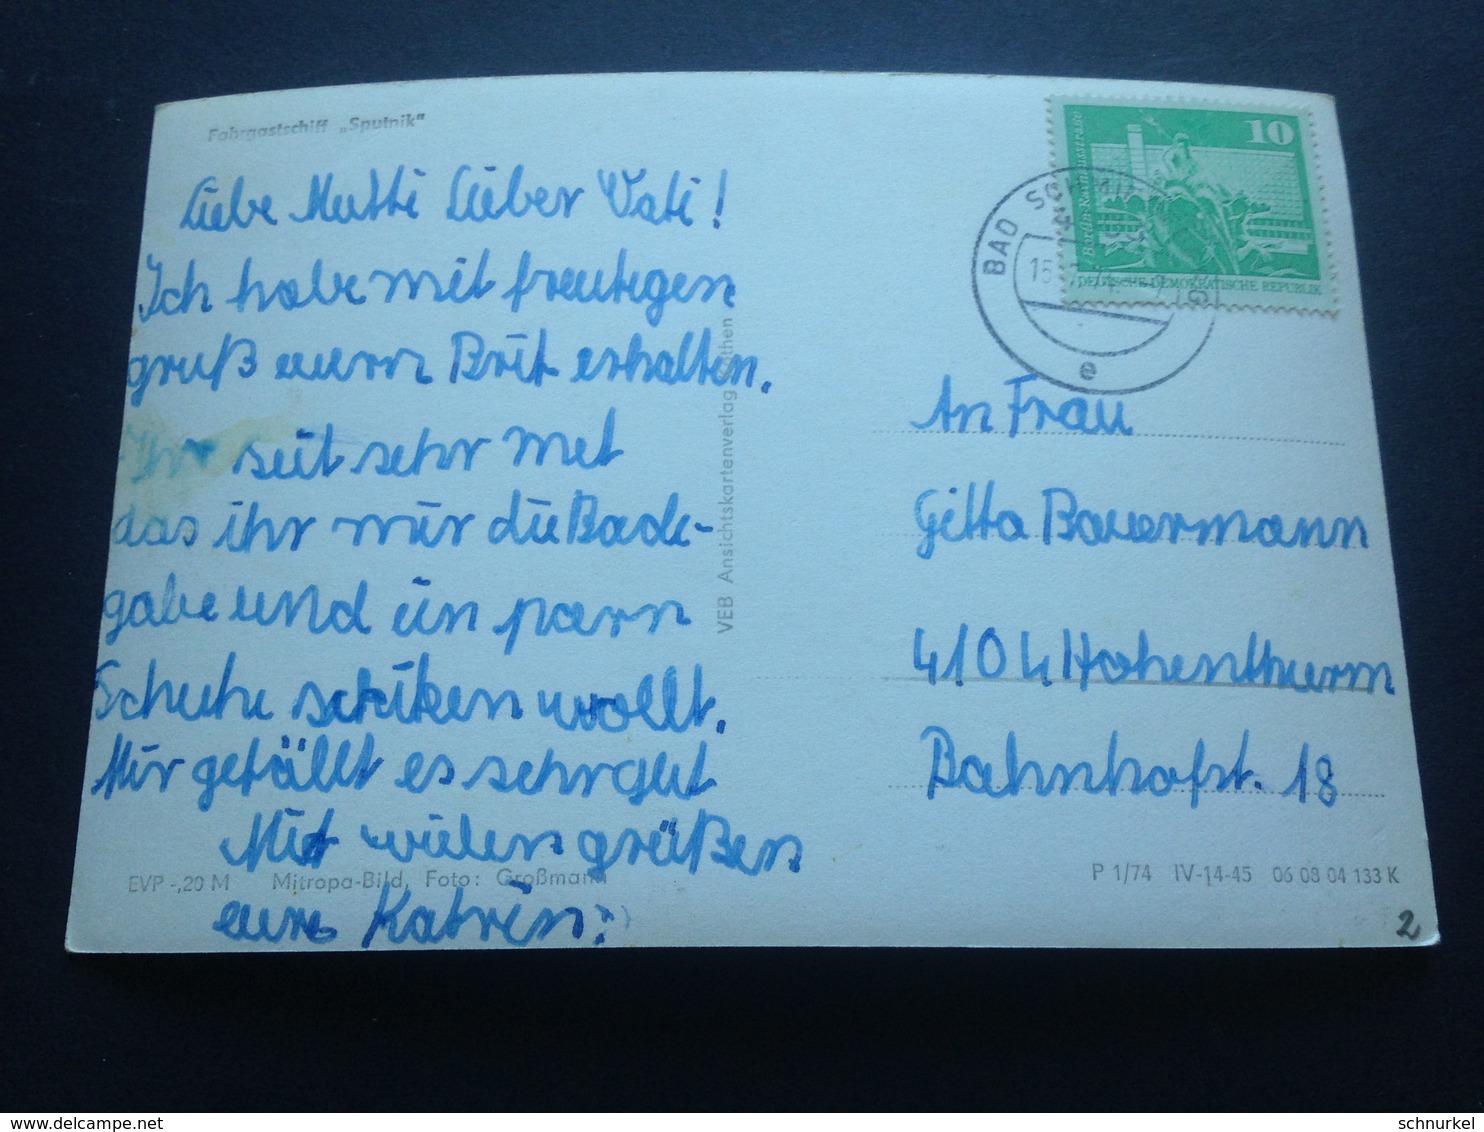 Fahrgastschiff „Sputnik"
Liebe Mutti Lieber Vati!
Ich habe mit freutegen
gruß euern Brif erhalten.
Ihr seit sehr met
das ihr mir die Bade-
gabe und ein parn
Schuhe schiken wollt.
Mir gefällt es sehr gut
Mit vielen grüßen
eure Katrin
EVP -,20 M Mitropa-Bild, Foto: Großmann
VEB Ansichtskartenverlag
10
Berlin-Rathausstraße
DEUTSCHE DEMOKRATISCHE REPUBLIK
BAD
e
An Frau
Gitta Bauermann
4104 Hohenthurm
Bahnhofst. 18
P 1/74 IV-14-45 06 08 04 133 K
2
schnurkel